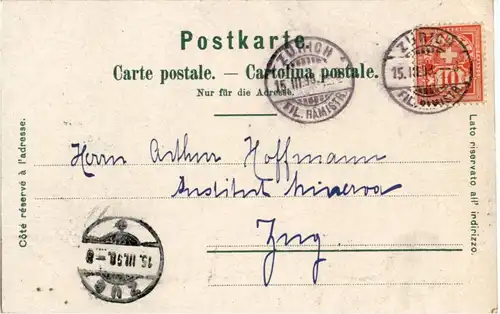 Postkarte.
Carte postale. — Cartolina postale.
Nur für die Adresse.
ZÜRICH
15.III.98.
FIL. RÄMISTR.
ZÜRICH
15.III.98
FIL. RÄMISTR.
10
Côté réservé à l'adresse.
Lato riservato all' indirizzo.
Herrn Arthur Hoffmann
Institut Minerva
Zug
15.III.98.-8
ZUG